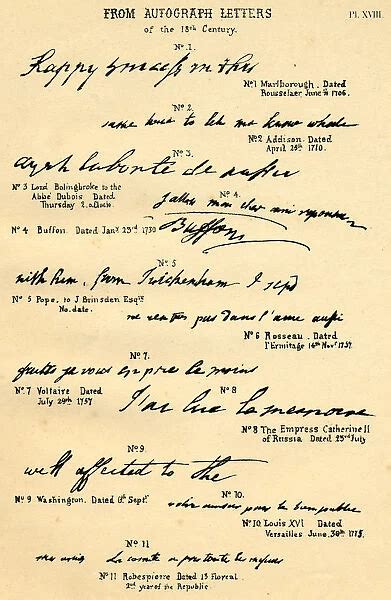 FROM AUTOGRAPH LETTERS
Pl. XVIII.
of the 18th Century.
Nº. 1.
Happy
Nº 1 Marlborough. Dated
Rousselaer, June 1706.
Nº 2.
to let me know
Nº 2 Addison. Dated
April 25th 1710.
Nº 3.
la bonté de
Nº 3 Lord Bolingbroke to the
Abbé Dubois Dated.
Thursday 2.o'Clock.
Nº 4.
mon cher ami
Buffon
Nº 4 Buffon. Dated Janr 23rd 1730
Nº 5
with him, from Twickenham I
Nº 5 Pope, to J Brinsden Esqre
No date.
pas dans l'ame aussi
Nº 6 Rosseau. Dated
l'Ermitage 14th Novr 1757.
Nº 7.
je vous en prie le moins
Nº 7 Voltaire Dated
July 29th 1757
Nº 8
J'ai lue le
Nº 8 The Empress Catherine II
of Russia Dated 23rd July
Nº 9
well affected to the
Nº 9 Washington. Dated Septr.
Nº 10.
pour le bien public
Nº 10 Louis XVI Dated
Versailles June. 30th 1775.
Nº 11
Le comité a pris toute les mesures
Nº 11 Robespierre Dated 13 Floreal
2nd year of the Republic.